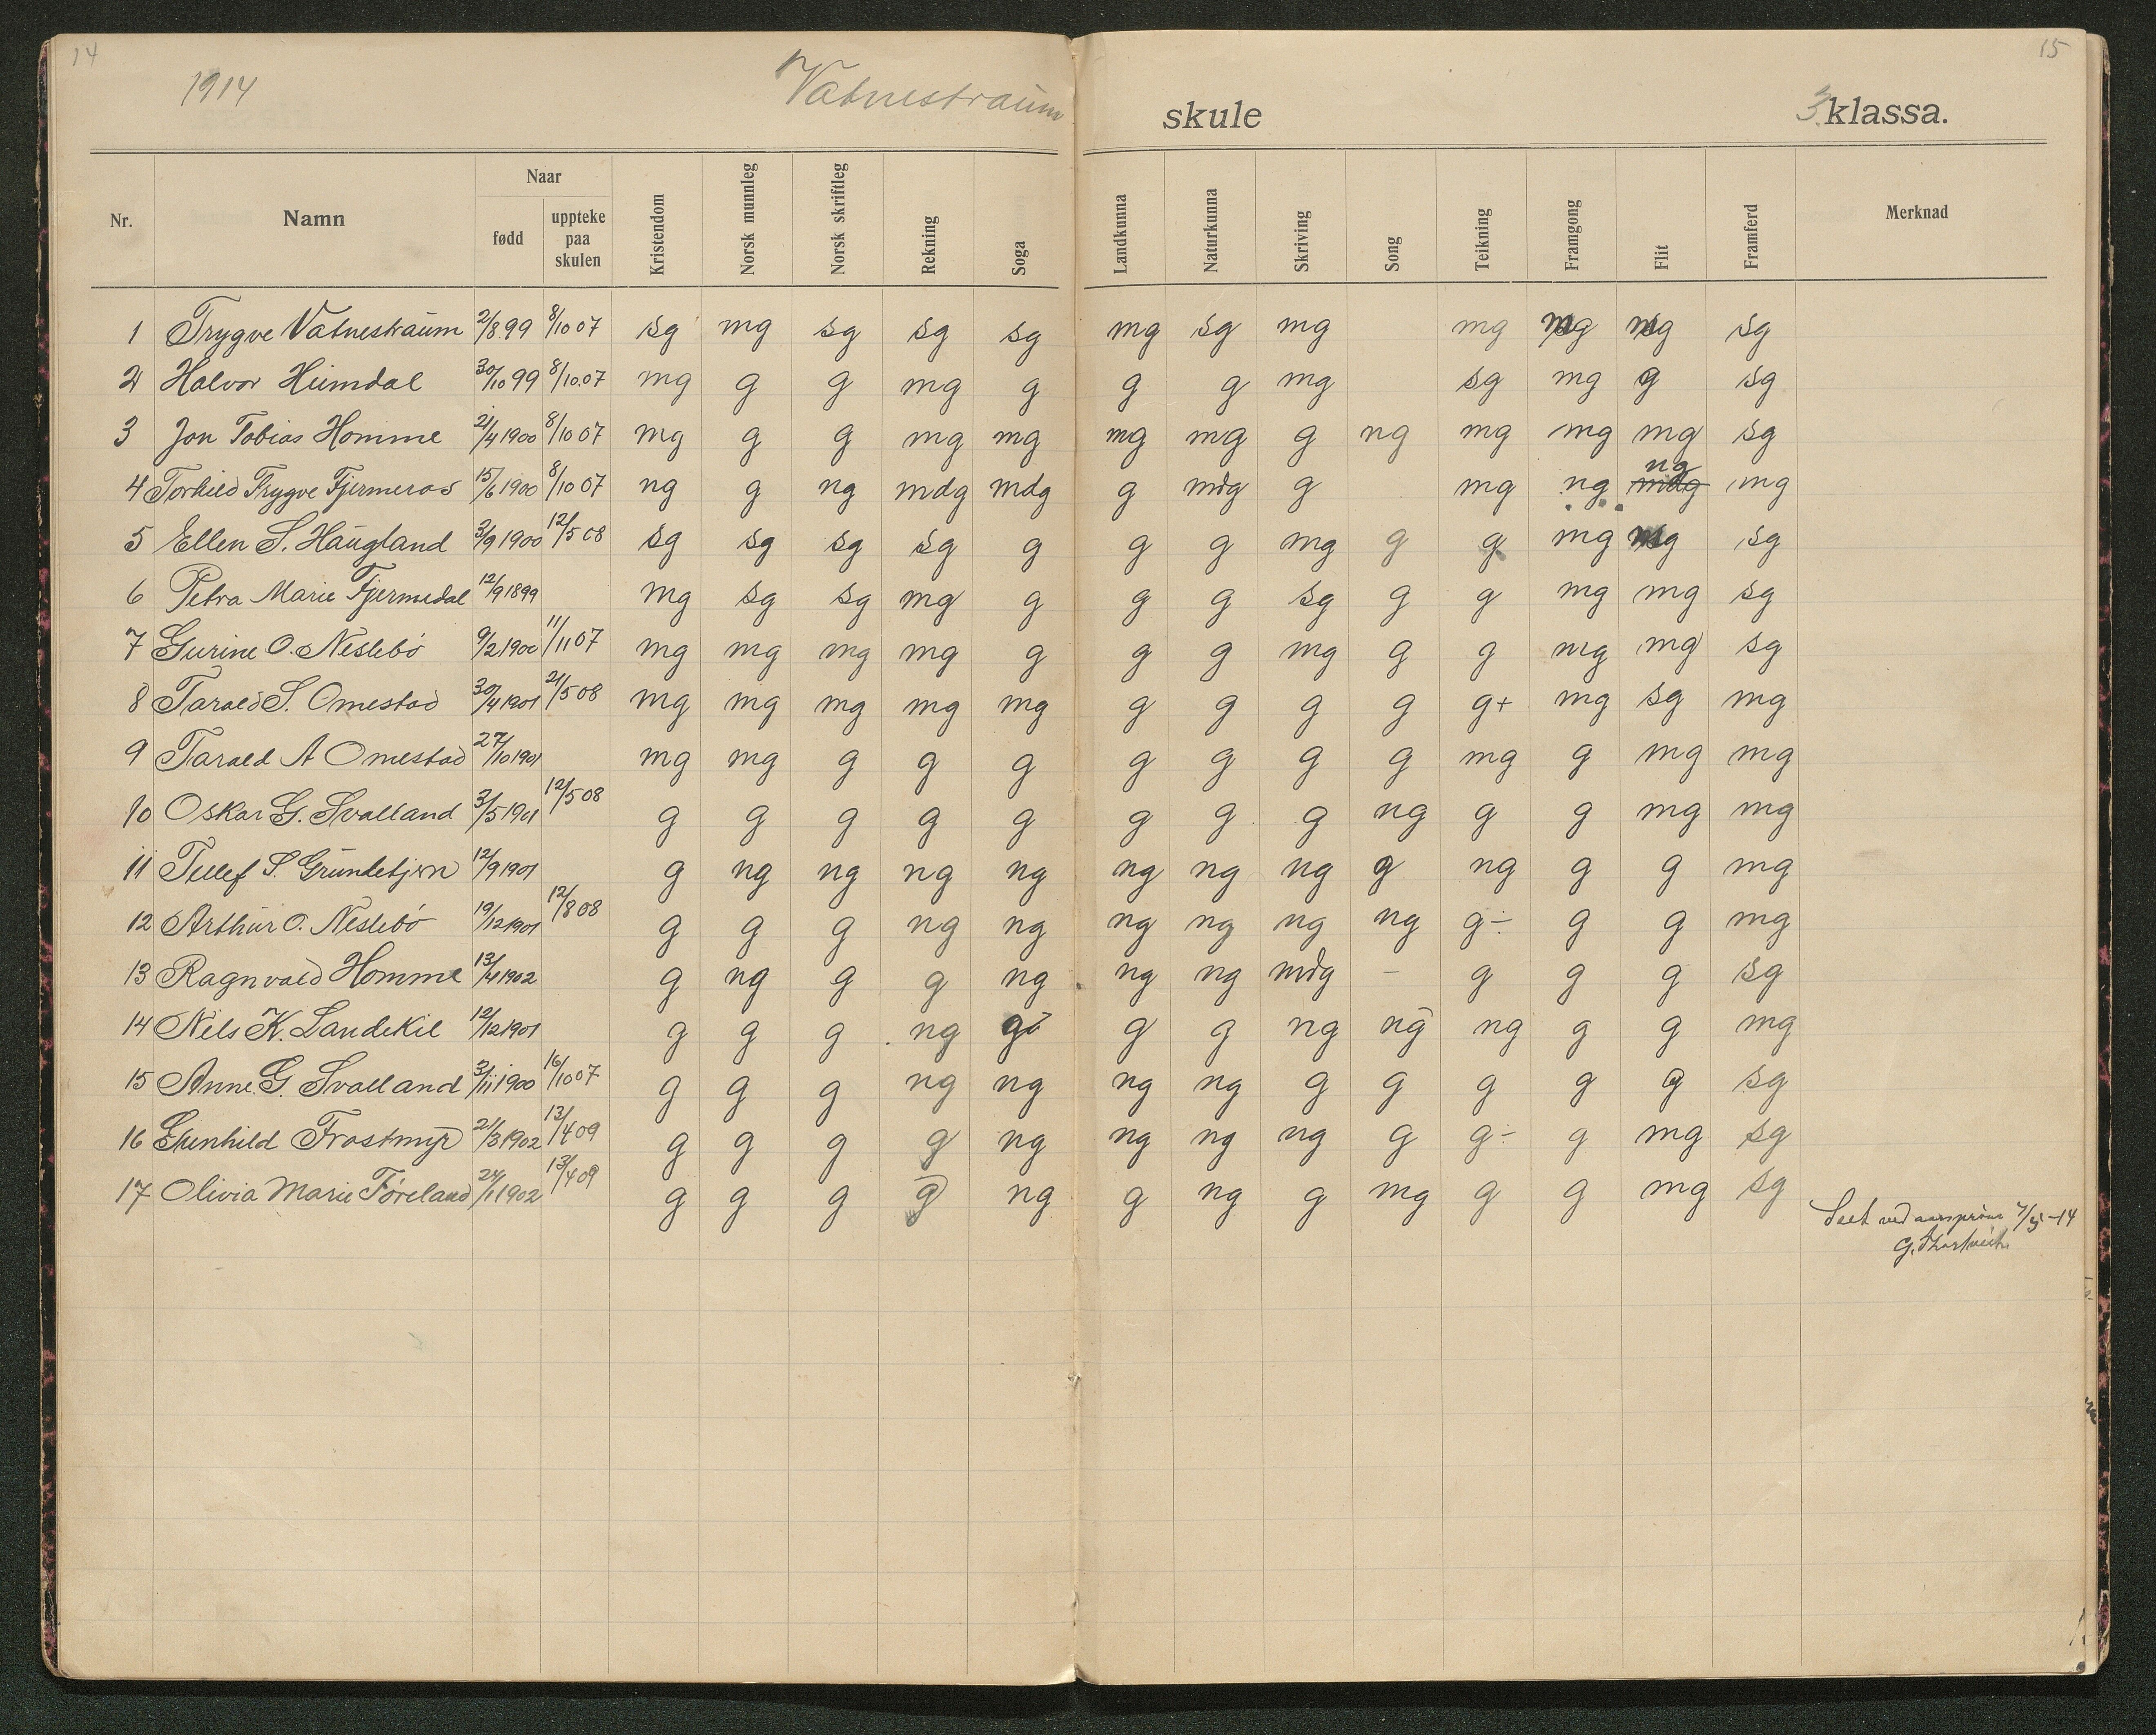 14
15
1914 Vatnestraum skule 3. klassa.
Nr. Namn Naar Kristendom Norsk munnleg Norsk skriftleg Rekning Soga Landkunna Naturkunna Skriving Song Teikning Framgong Flit Framferd Merknad
fødd uppteke paa skulen
1 Trygve Vatnestraum 2/8 99 8/10 07 sg mg sg sg sg mg sg mg mg sg
2 Halvor Heimdal 30/10 99 8/10.07 mg g g mg g g g mg sg mg g sg
3 Jon Tobias Homme 21/4 1900 8/10 07 mg g g mg mg mg mg g ng mg mg mg sg
4 Torkild Trygve Fjermeros 15/6 1900 8/10 07 ng g ng mdg mdg g mdg g mg ng mdg ng mg
5 Ellen S. Haugland 3/9 1900 12/5 08 sg sg sg sg g g g mg g g mg sg
6 Petra Marie Fjermedal 12/9 1899 mg sg sg mg g g g sg g g mg mg sg
7 Gurine O. Neslebø 9/2 1900 11/11 07 mg mg mg mg g g g mg g g mg mg sg
8 Tarald S. Omestad 30/4 1901 21/5 08 mg mg mg mg mg g g g g g+ mg sg mg
9 Tarald A Omestad 27/10 1901 mg mg g g g g g g g mg g mg mg
10 Oskar G. Svalland 3/5 1901 12/5 08 g g g g g g g g ng g g mg mg
11 Tellef S. Grundetjern 12/9 1901 g ng ng ng ng ng ng ng g ng g g mg
12 Arthur O. Neslebø 19/12 1901 12/8 08 g g g ng ng ng ng ng ng g÷ g g mg
13 Ragnvald Homme 13/4 1902 g ng g g ng ng ng mdg – g g g sg
14 Nils K. Landekil 12/12 1901 g g g ng g g g ng ng ng g g mg
15 Anne G. Svalland 3/11 1900 16/10 07 g g g ng ng ng ng g g g g g sg
16 Gunhild Frostmyr 21/3 1902 13/4 09 g g g g ng ng ng ng g g÷ g mg sg
17 Olivia Marie Føreland 24/1 1902 13/4 09 g g g g ng g ng g mg g g mg sg
Seet ved aarsprøve 7/5 -14